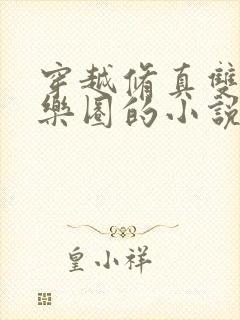 穿越修真雙
樂園的小說
皇小祥